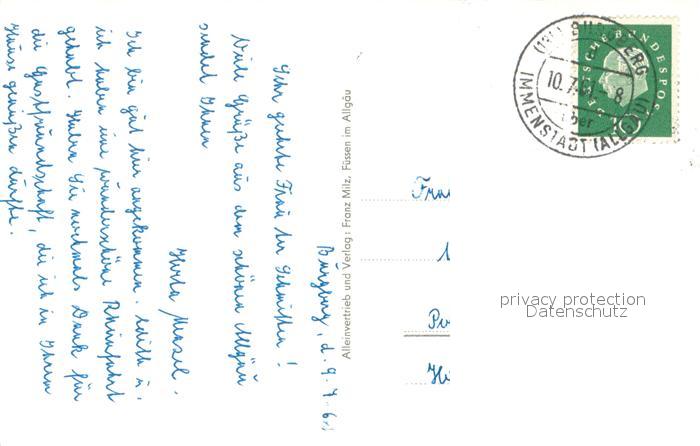 Burgberg, d. 9. 7. 61
Sehr geehrte Frau Ter Schmitten!
Viele Grüße aus dem schönen Allgäu
sendet Ihnen
Herta Menzel.
Ich bin gut hier angekommen. Edith u.
ich haben eine wunderschöne Rheinfahrt
gehabt. Haben Sie nochmals Dank für
die Gastfreundschaft, die ich in Ihrem
Hause genießen durfte.
Alleinvertrieb und Verlag: Franz Milz, Füssen im Allgäu
Frau
Po
BURGBERG
10.7.61 - 8
über
IMMENSTADT (ALLGÄU)
DEUTSCHE BUNDESPOST
privacy protection
Datenschutz